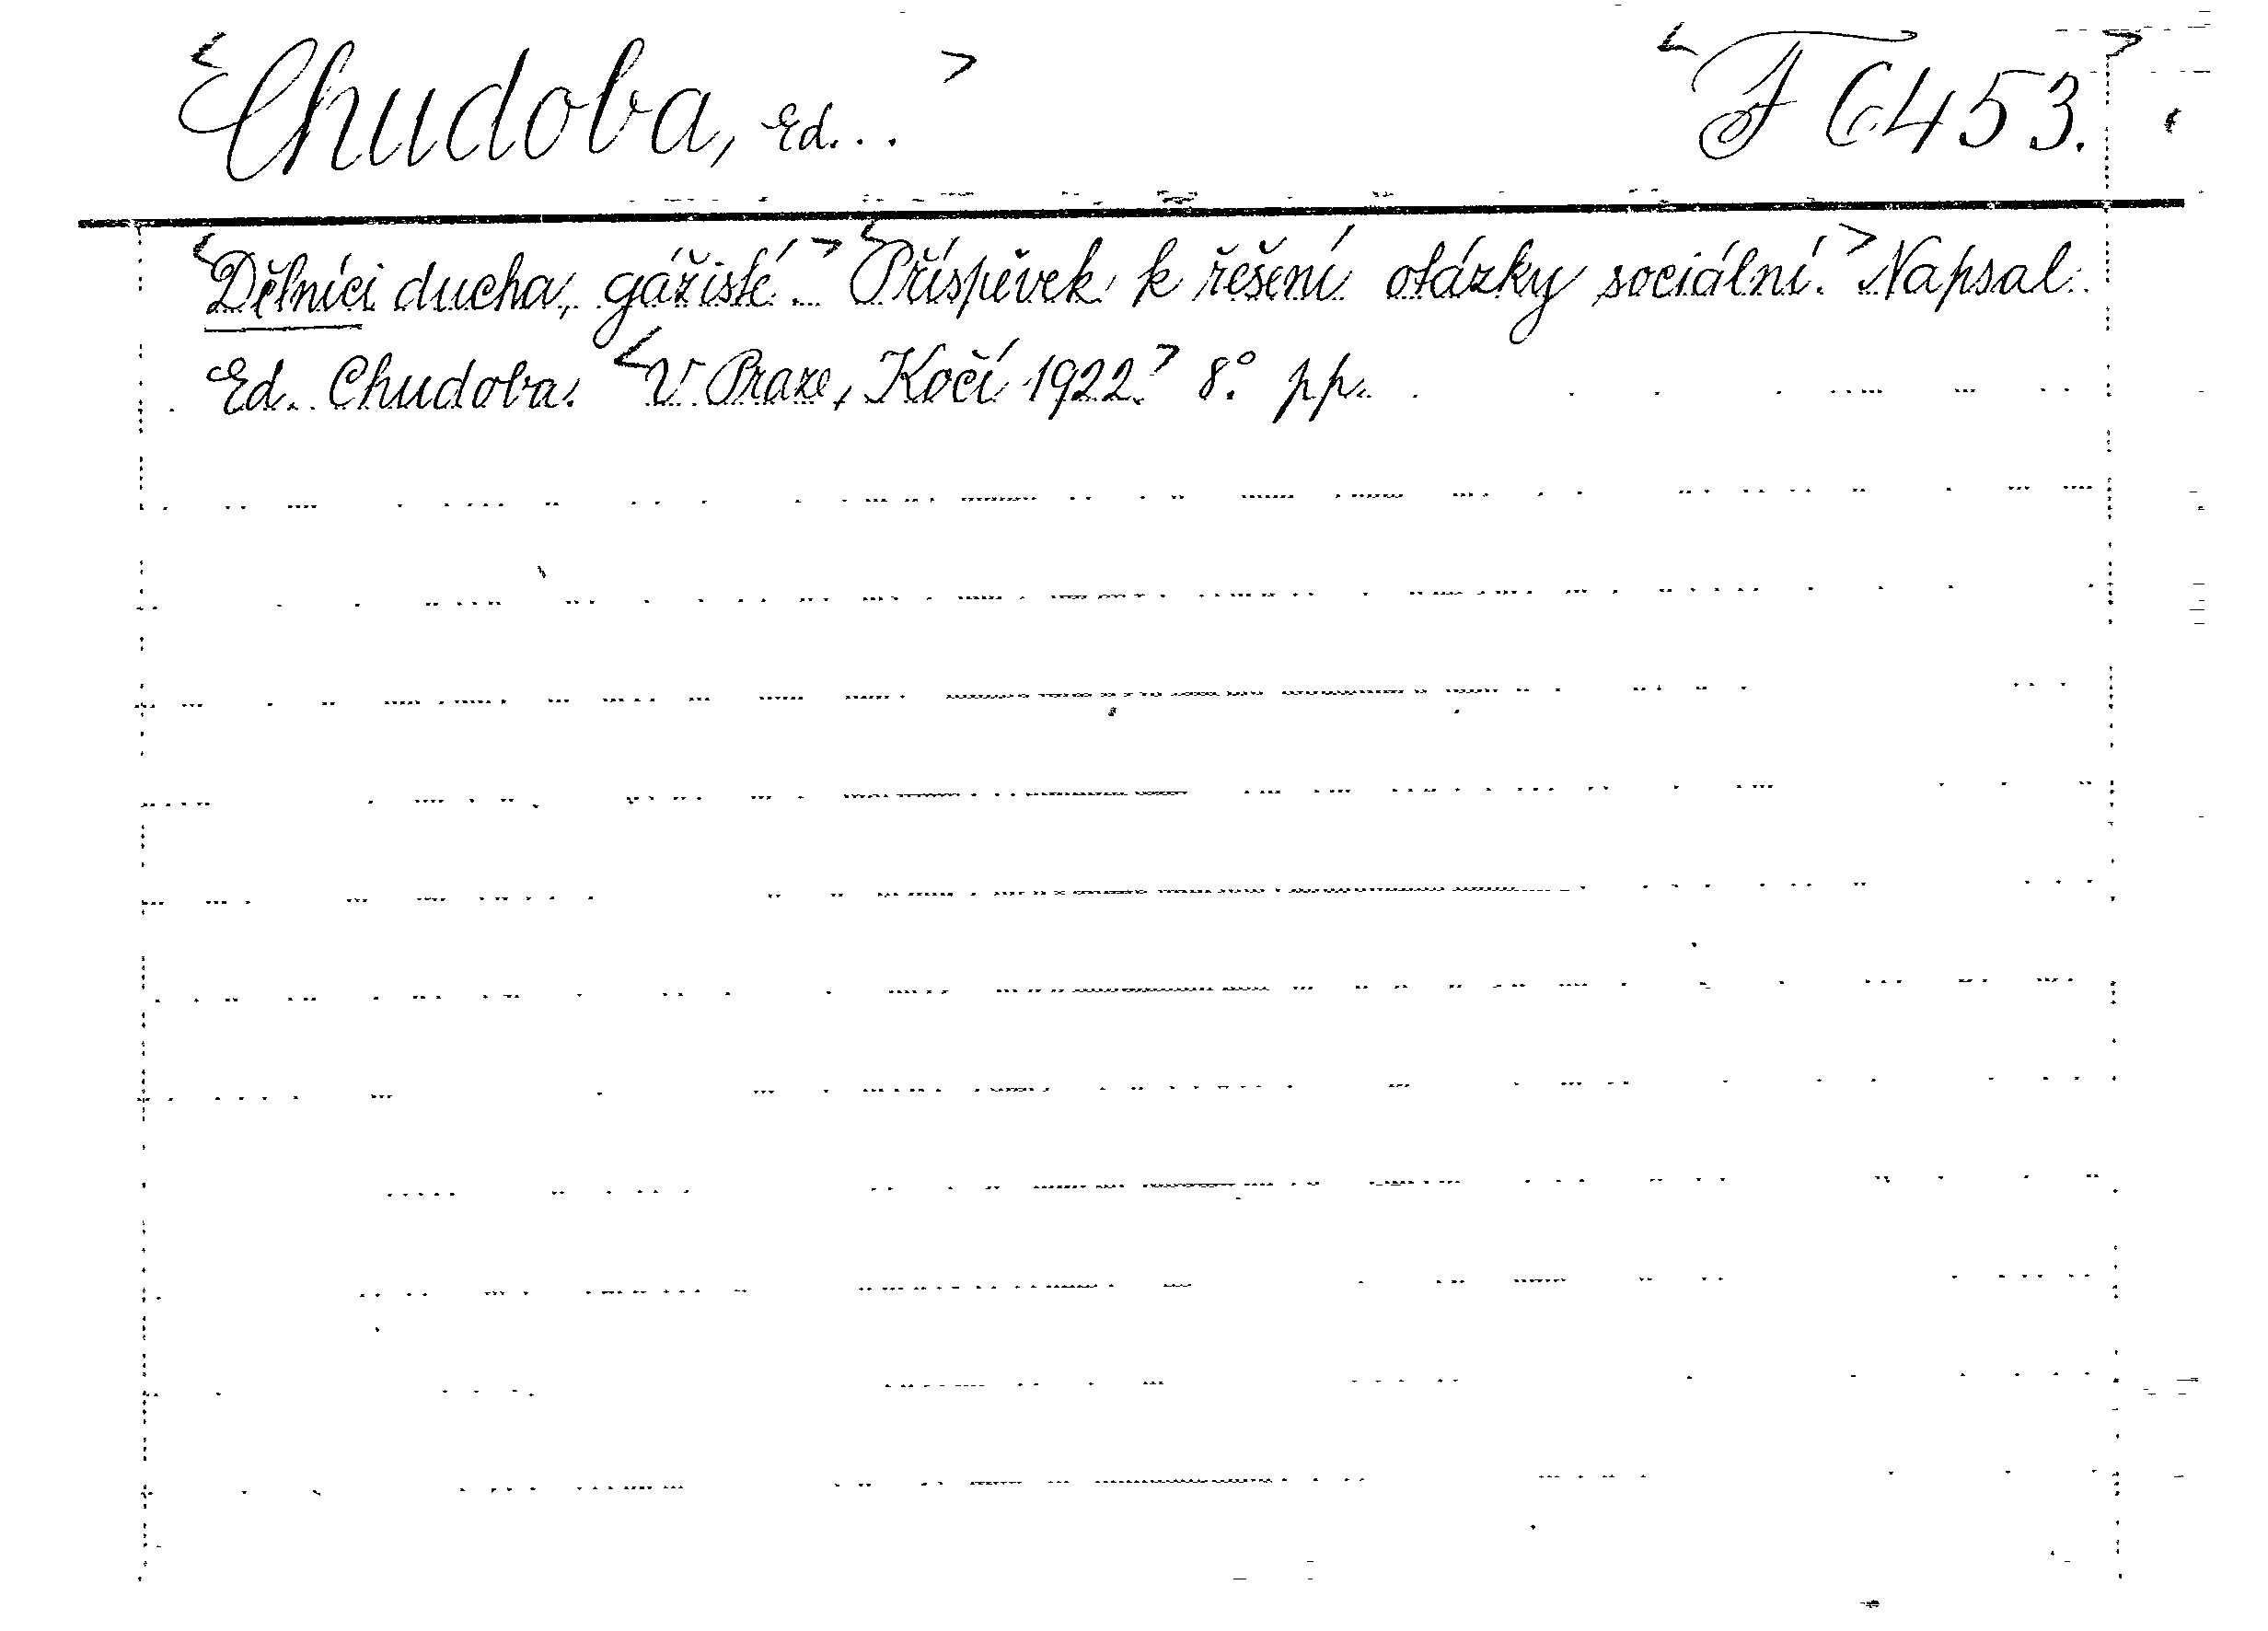 <Chudoba, Ed...> <F 6453.>
<Dělníci ducha, gážisté.> <Příspěvek k řešení otázky sociální.> Napsal
Ed. Chudoba. <V Praze, Kočí 1922.> 8° pp.